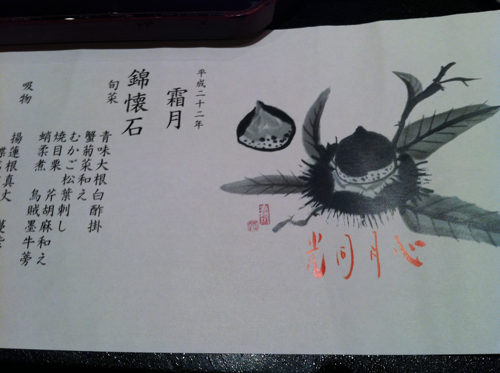 心月同光
平成二十二年
霜月
錦懐石
旬菜
青味大根白酢掛
蟹菊菜和え
むかご松葉刺し
焼目栗 芹胡麻和え
蛸柔煮 烏賊墨牛蒡
吸物
揚蓮根真丈